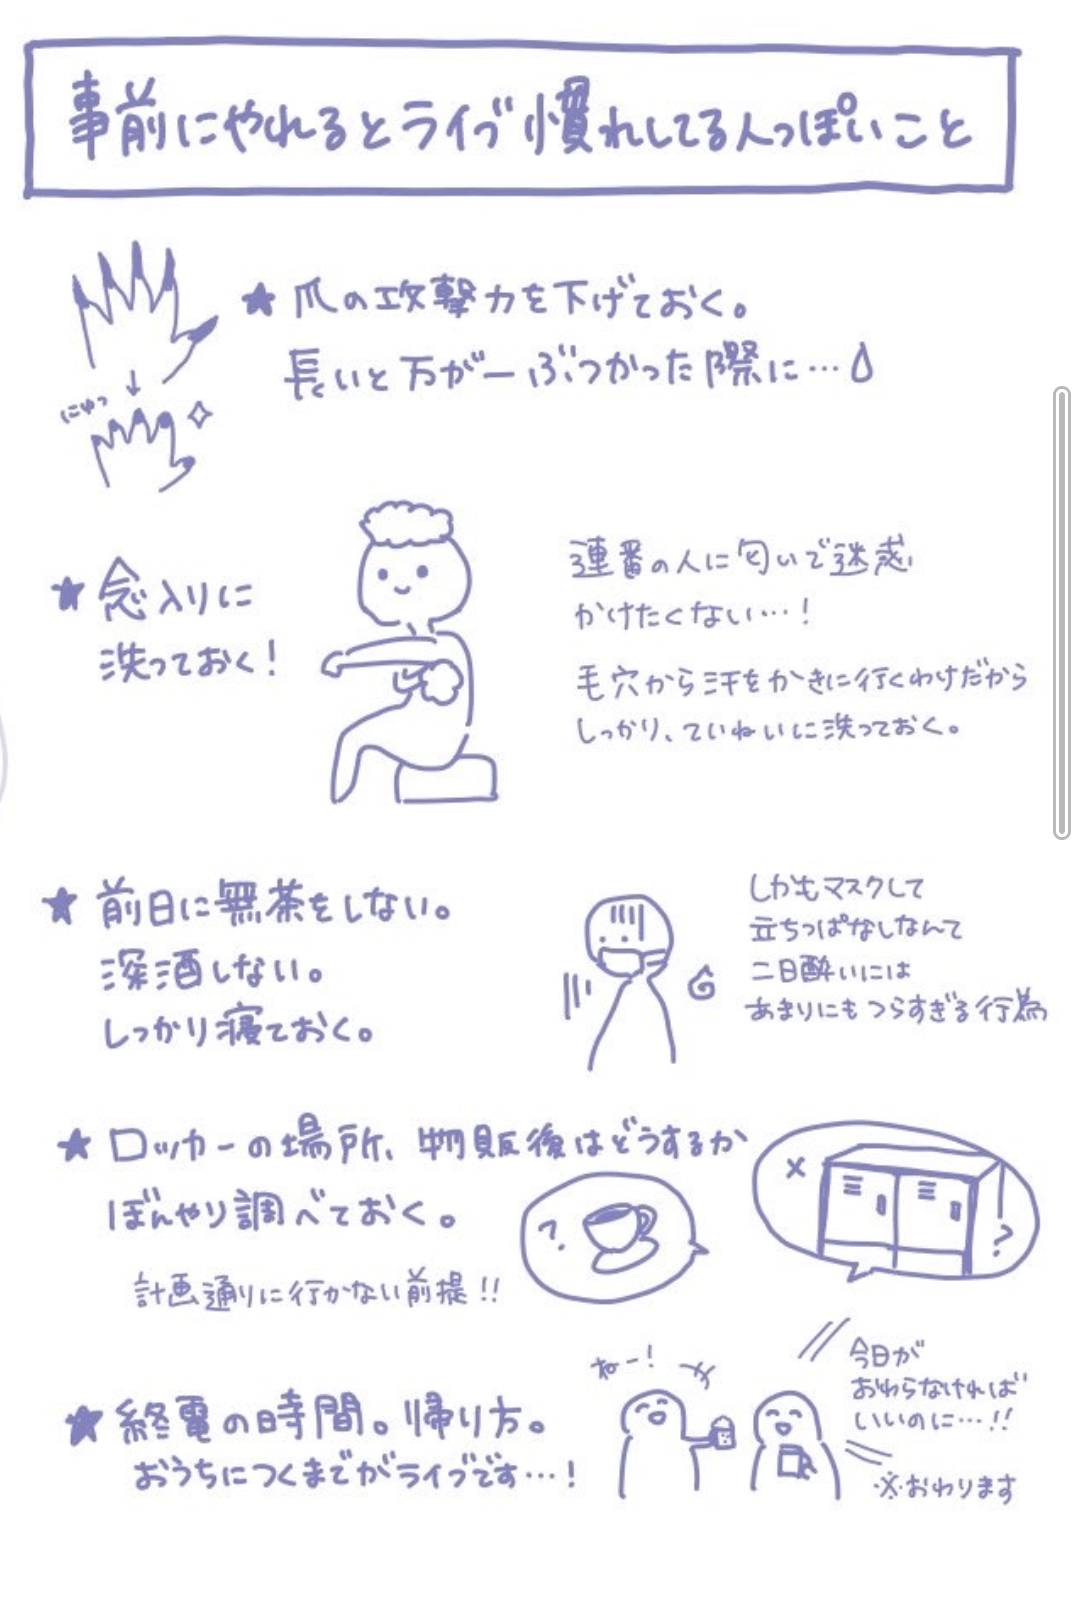 事前にやれるとライブ慣れしてる人っぽいこと
★爪の攻撃力を下げておく。
長いと万が一ぶつかった際に…
にゅっ
★念入りに
洗っておく!
連番の人に匂いで迷惑
かけたくない…!
毛穴から汗をかきに行くわけだから
しっかり、ていねいに洗っておく。
★前日に無茶をしない。
深酒しない。
しっかり寝ておく。
しかもマスクして
立ちっぱなしなんて
二日酔いには
あまりにもつらすぎる行為
★ロッカーの場所、物販後はどうするか
ぼんやり調べておく。
計画通りに行かない前提!!
?
×
?
★終電の時間。帰り方。
おうちにつくまでがライブです…!
ねー!
今日が
おわらなければ
いいのに…!!
※おわります